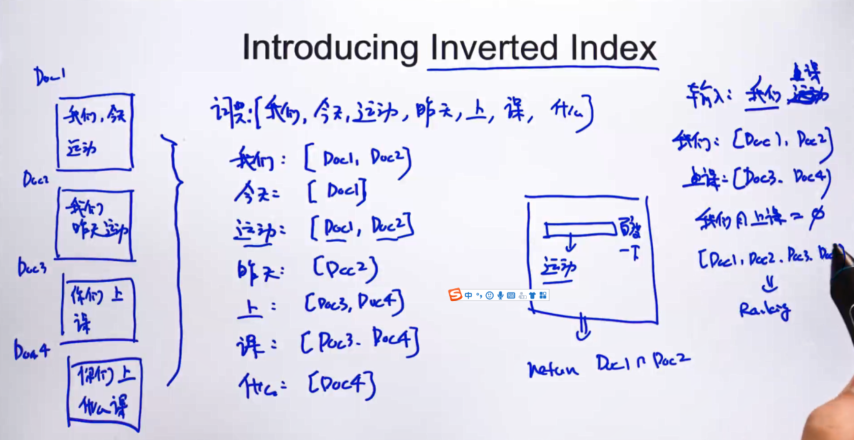 Introducing Inverted Index
Doc1
我们, 今天
运动
Doc2
我们
昨天运动
Doc3
你们 上
课
Doc4
你们上
什么课
词典:[我们, 今天, 运动, 昨天, 上, 课, 什么]
我们: [Doc1, Doc2]
今天: [Doc1]
运动: [Doc1, Doc2]
昨天: [Doc2]
上: [Doc3, Doc4]
课: [Doc3. Doc4]
什么: [Doc4]
百度
一下
运动
return Doc1 ∩ Doc2
上课
输入: 我们 运动
我们: [Doc1, Doc2]
上课: [Doc3. Doc4]
我们∩上课 = ∅
[Doc1, Doc2. Doc3.
Ranking
中